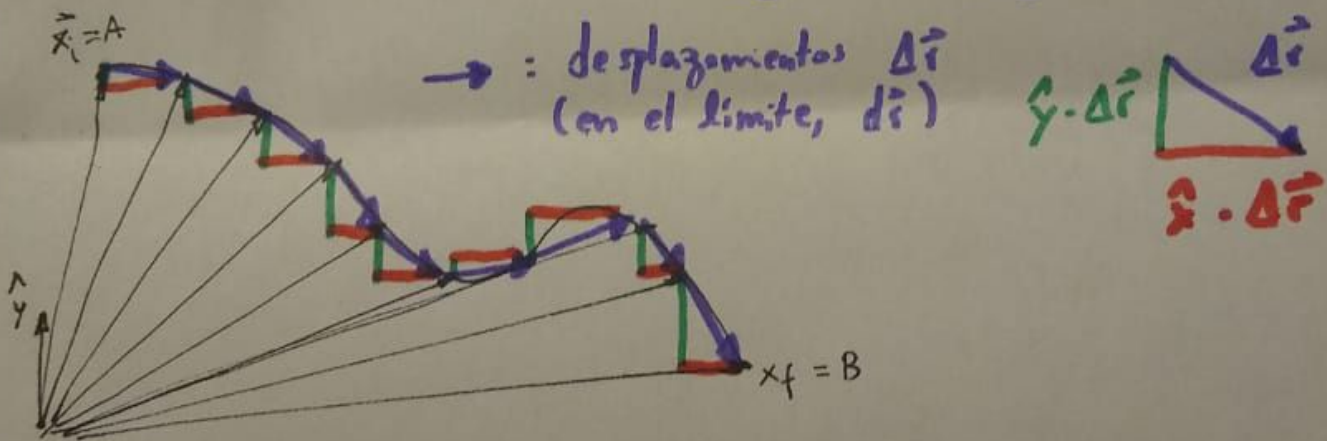 x⃗ᵢ = A
→ : desplazamientos Δr⃗
(en el límite, dr⃗)
Δr⃗
ŷ · Δr⃗
x̂ · Δr⃗
ŷ
x_f = B